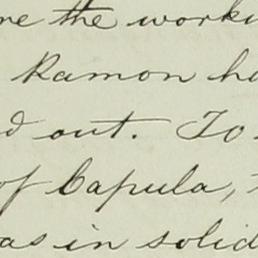 re the worki
Ramon ha
d out. To
of Capula,
as in solid